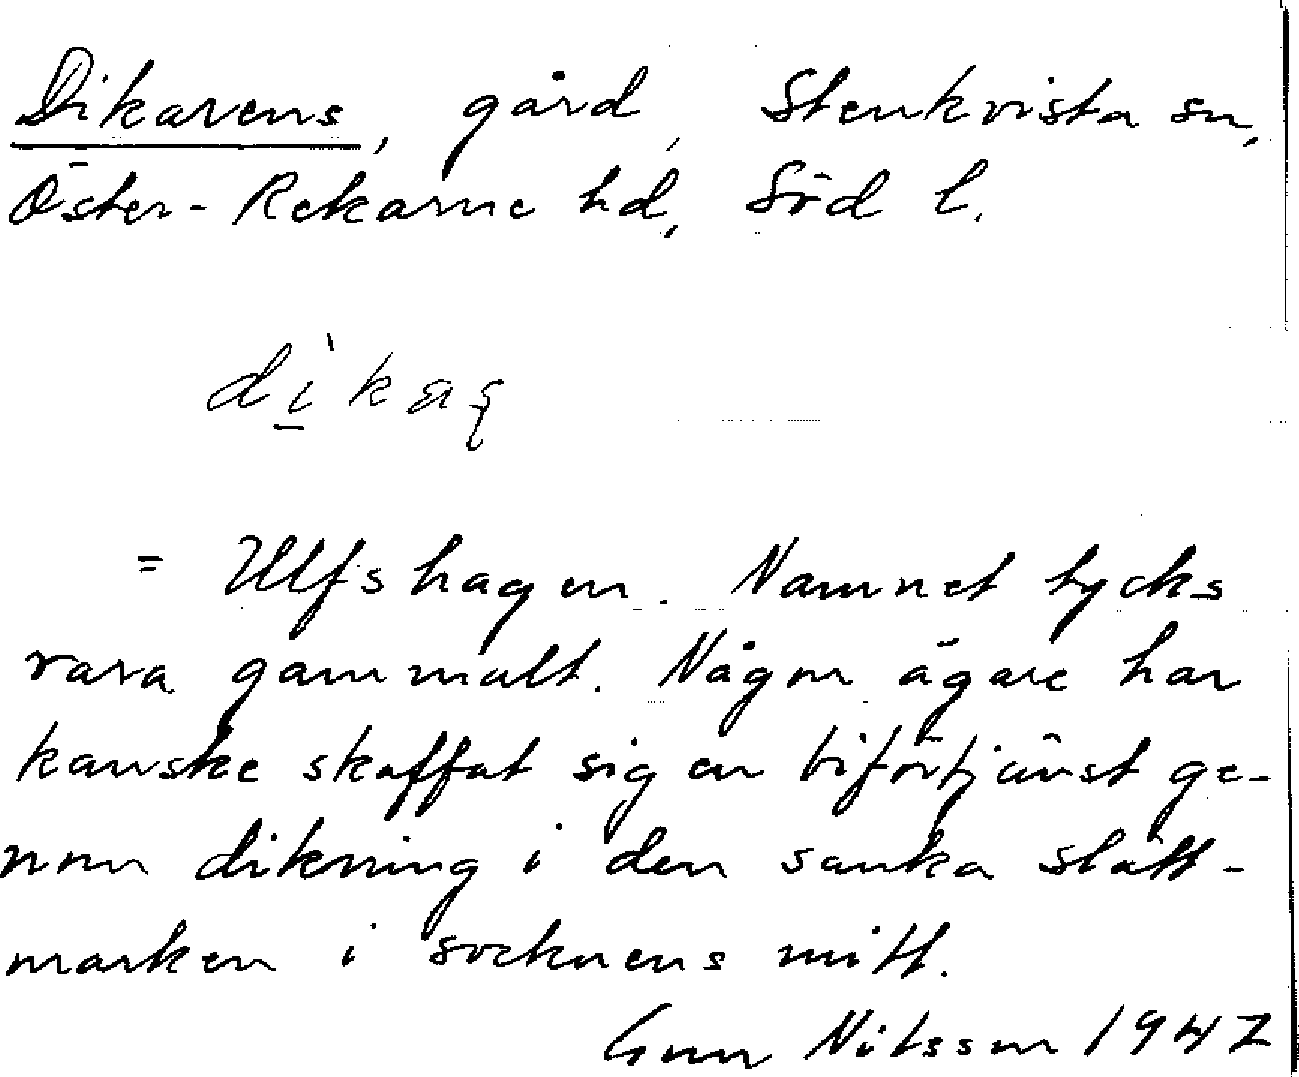 Dikarens, gård, Stenkvista sn,
Öster-Rekarne hd, Söd l.
= Ulfshagen. Namnet tycks
vara gammalt. Någon ägare har
kanske skaffat sig en biförtjänst ge-
nom dikning i den sanka slätt-
marken i socknens mitt.
Gun Nilsson 1947